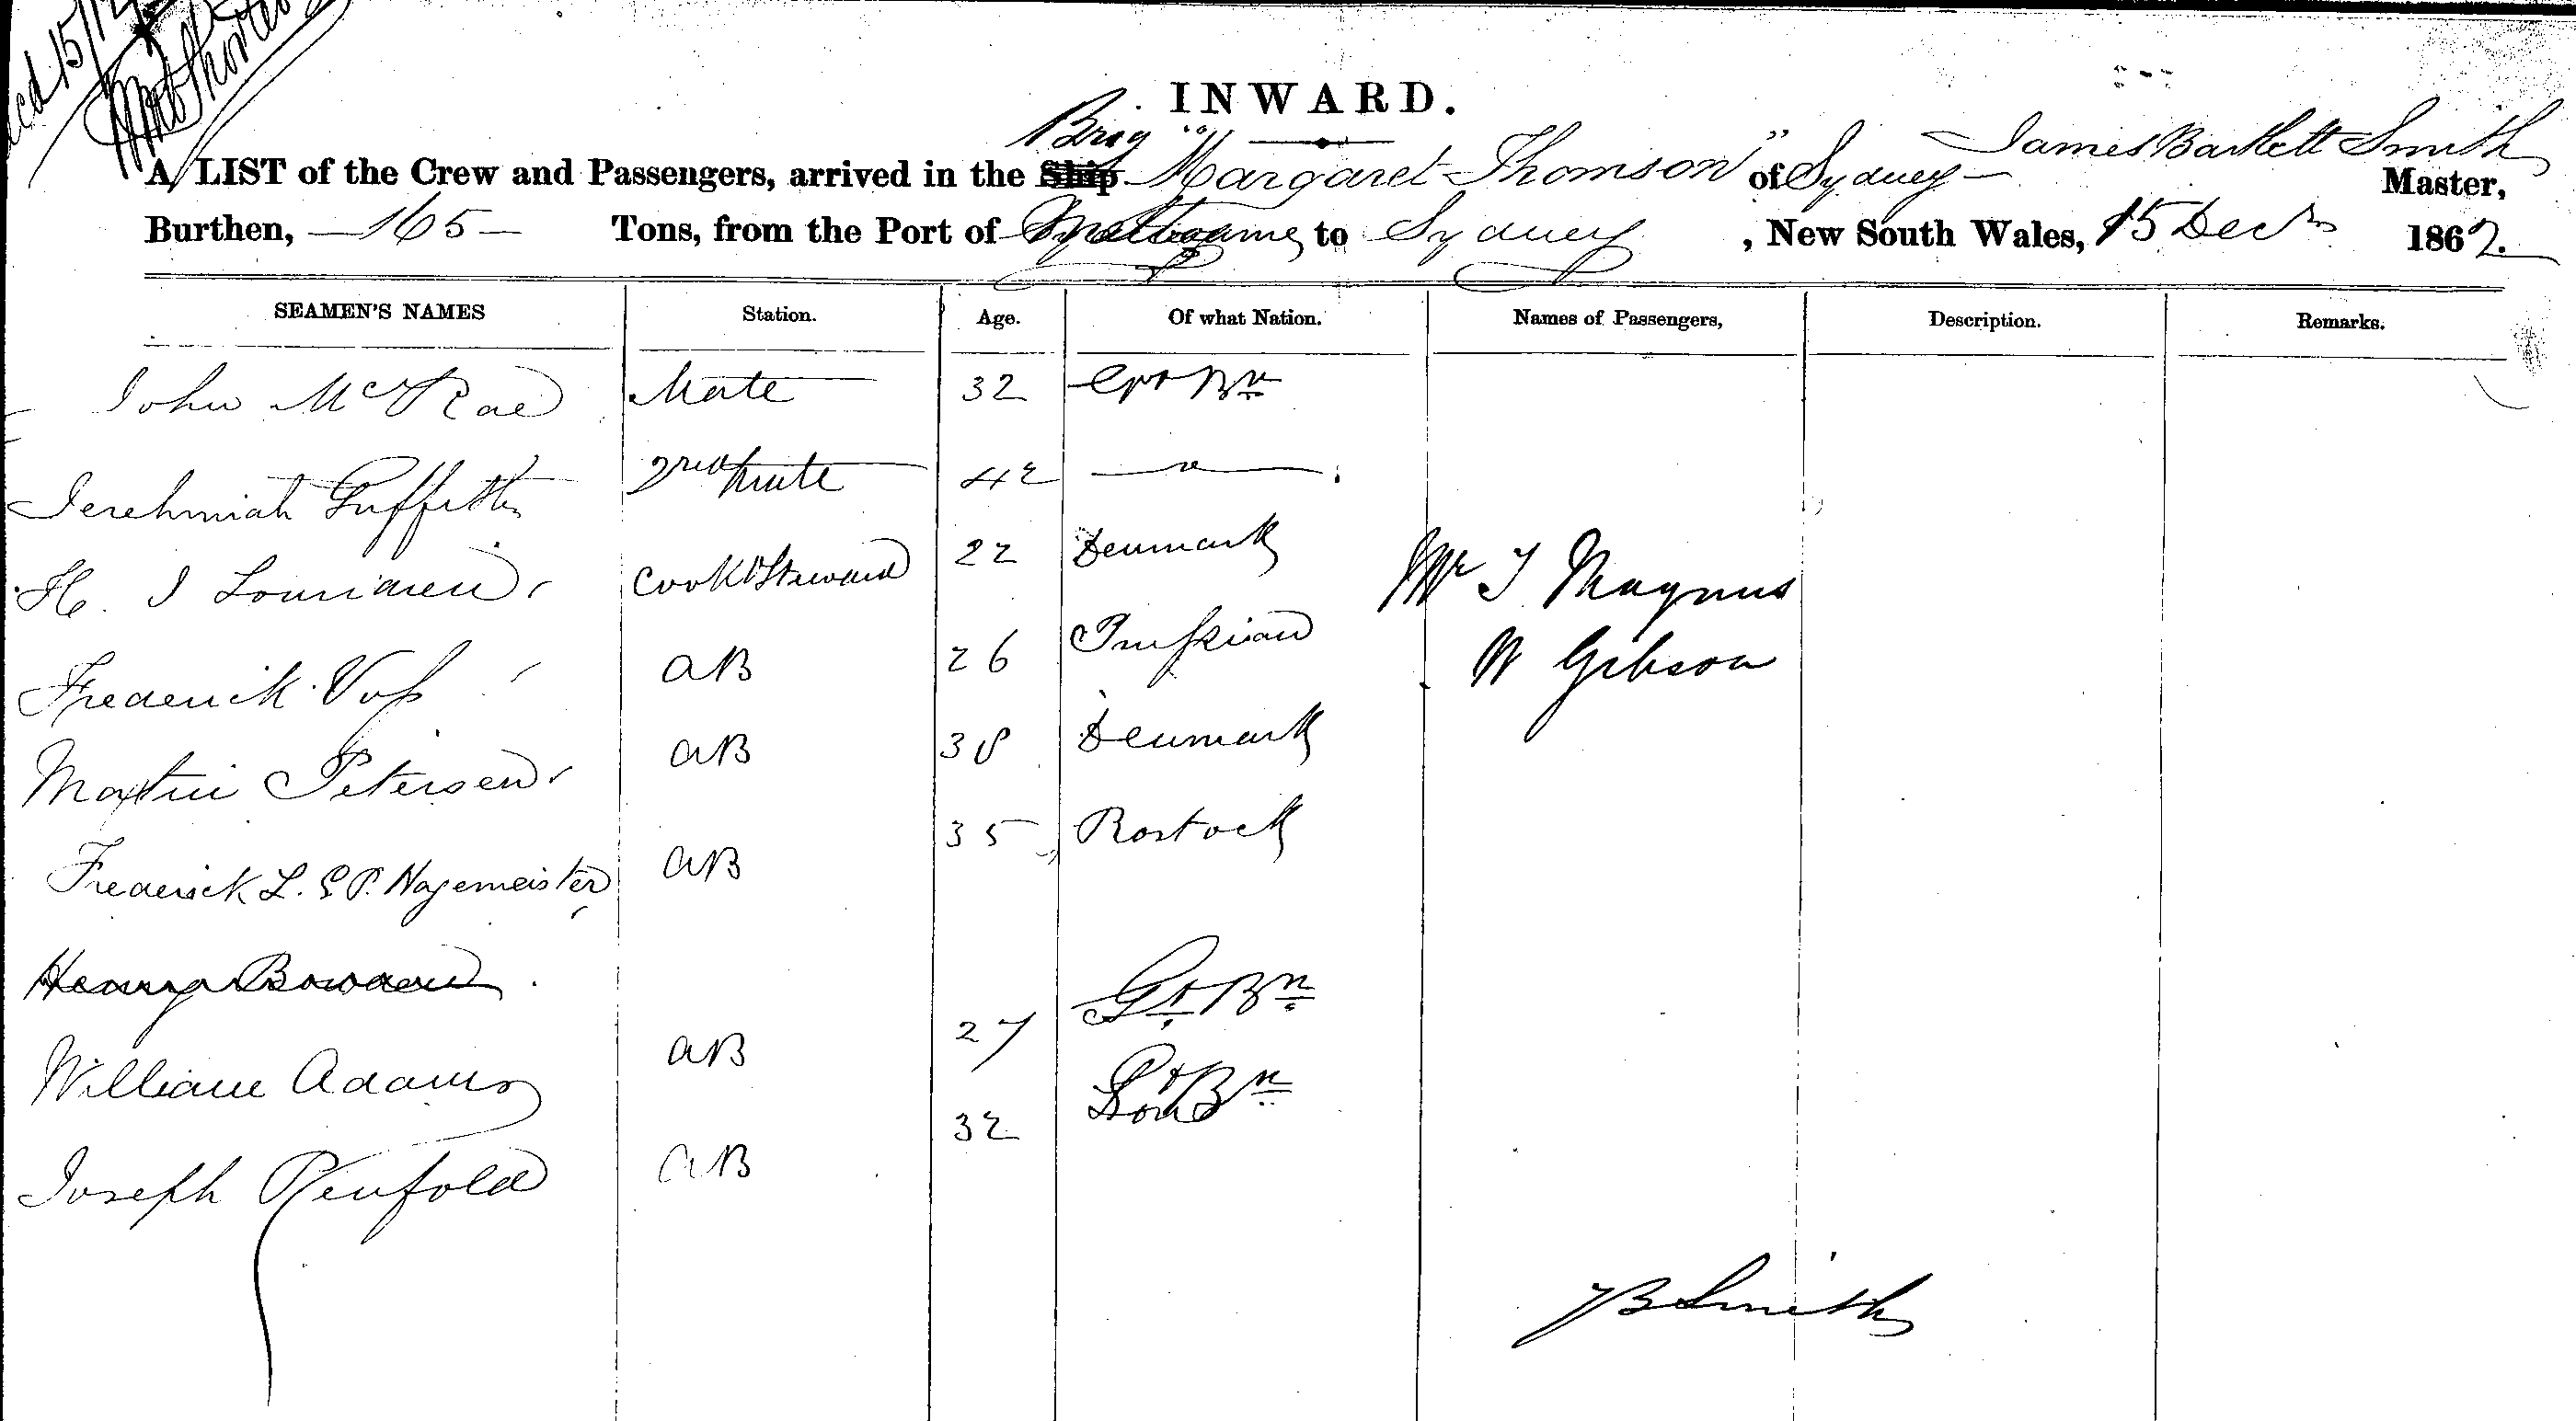 INWARD.
Brig
A LIST of the Crew and Passengers, arrived in the Ship "Margaret Thomson" of Sydney James Bartlett Smith Master,
Burthen, 165 Tons, from the Port of Melbourne to Sydney, New South Wales, 15 Decr 1862.
SEAMEN'S NAMES Station. Age. Of what Nation. Names of Passengers, Description. Remarks.
John McRae Mate 32 Grt Bn
Jerehmiah Griffiths 2nd Mate 42 "
H. J Cook & Steward 22 Denmark Mr J Magnus
Frederick Voss AB 26 Prussian W Gibson
Martin Petersen AB 38 Denmark
Frederick L. E P. Hagemeister AB 35 Rostock
Henry Bowden
William Adams AB 27 Gt Bn
Joseph Penfold AB 32 Gt Bn
JB Smith